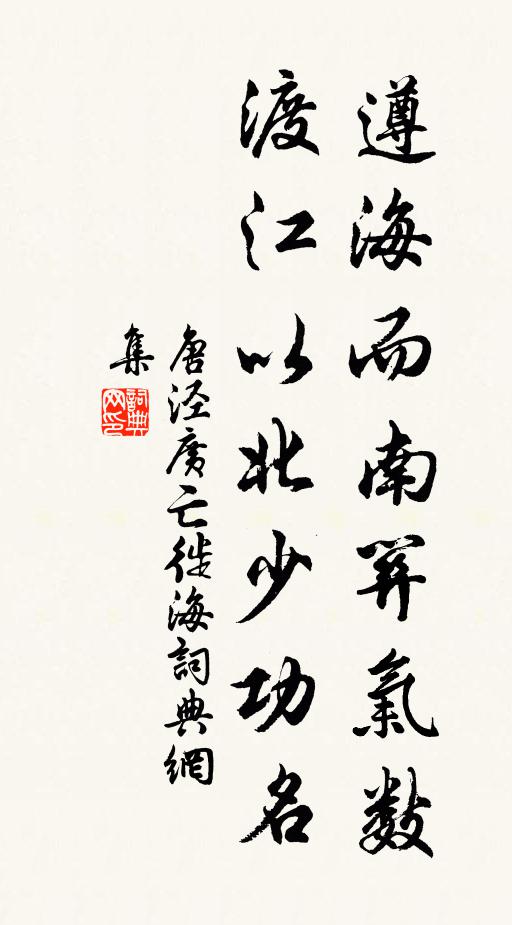 遵海而南關氣數
渡江以北少功名
唐泾廣亡徙海詞典網
集
詞典
网印